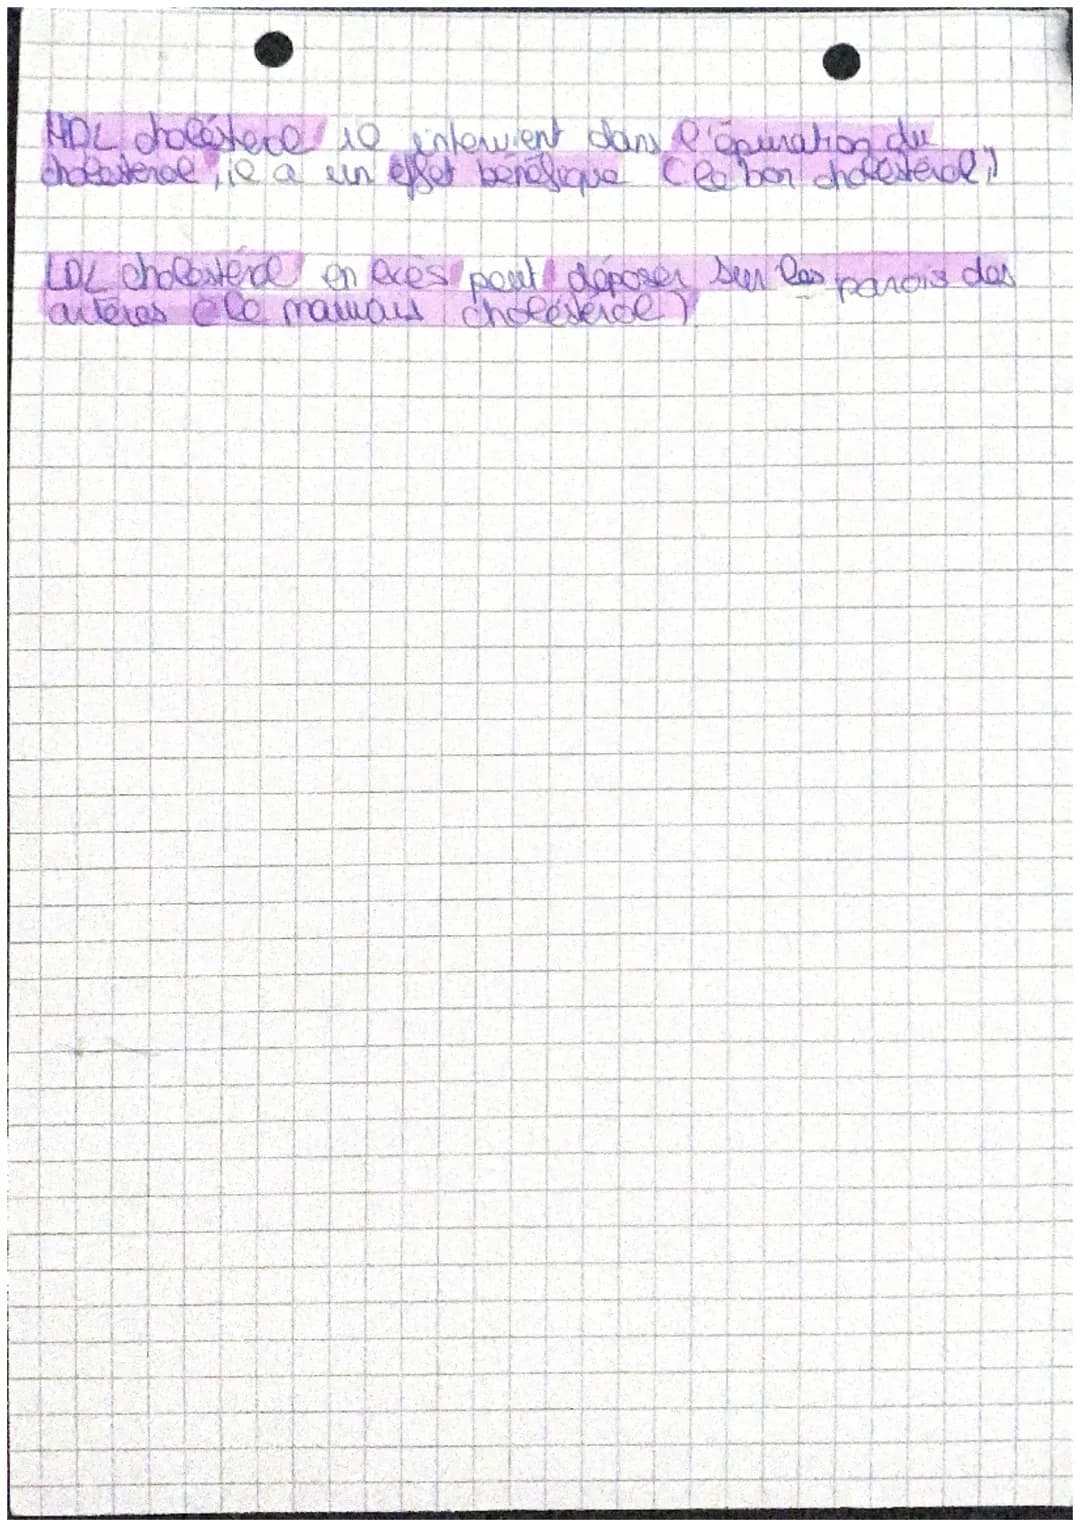 HDL choléstérol il intervient dans l'épuration du
cholestérol, il a un effet bénéfique (le bon choléstérol)
LDL cholestérol en excès peut déposer sur les parois des
artères (le mauvais choléstérol)